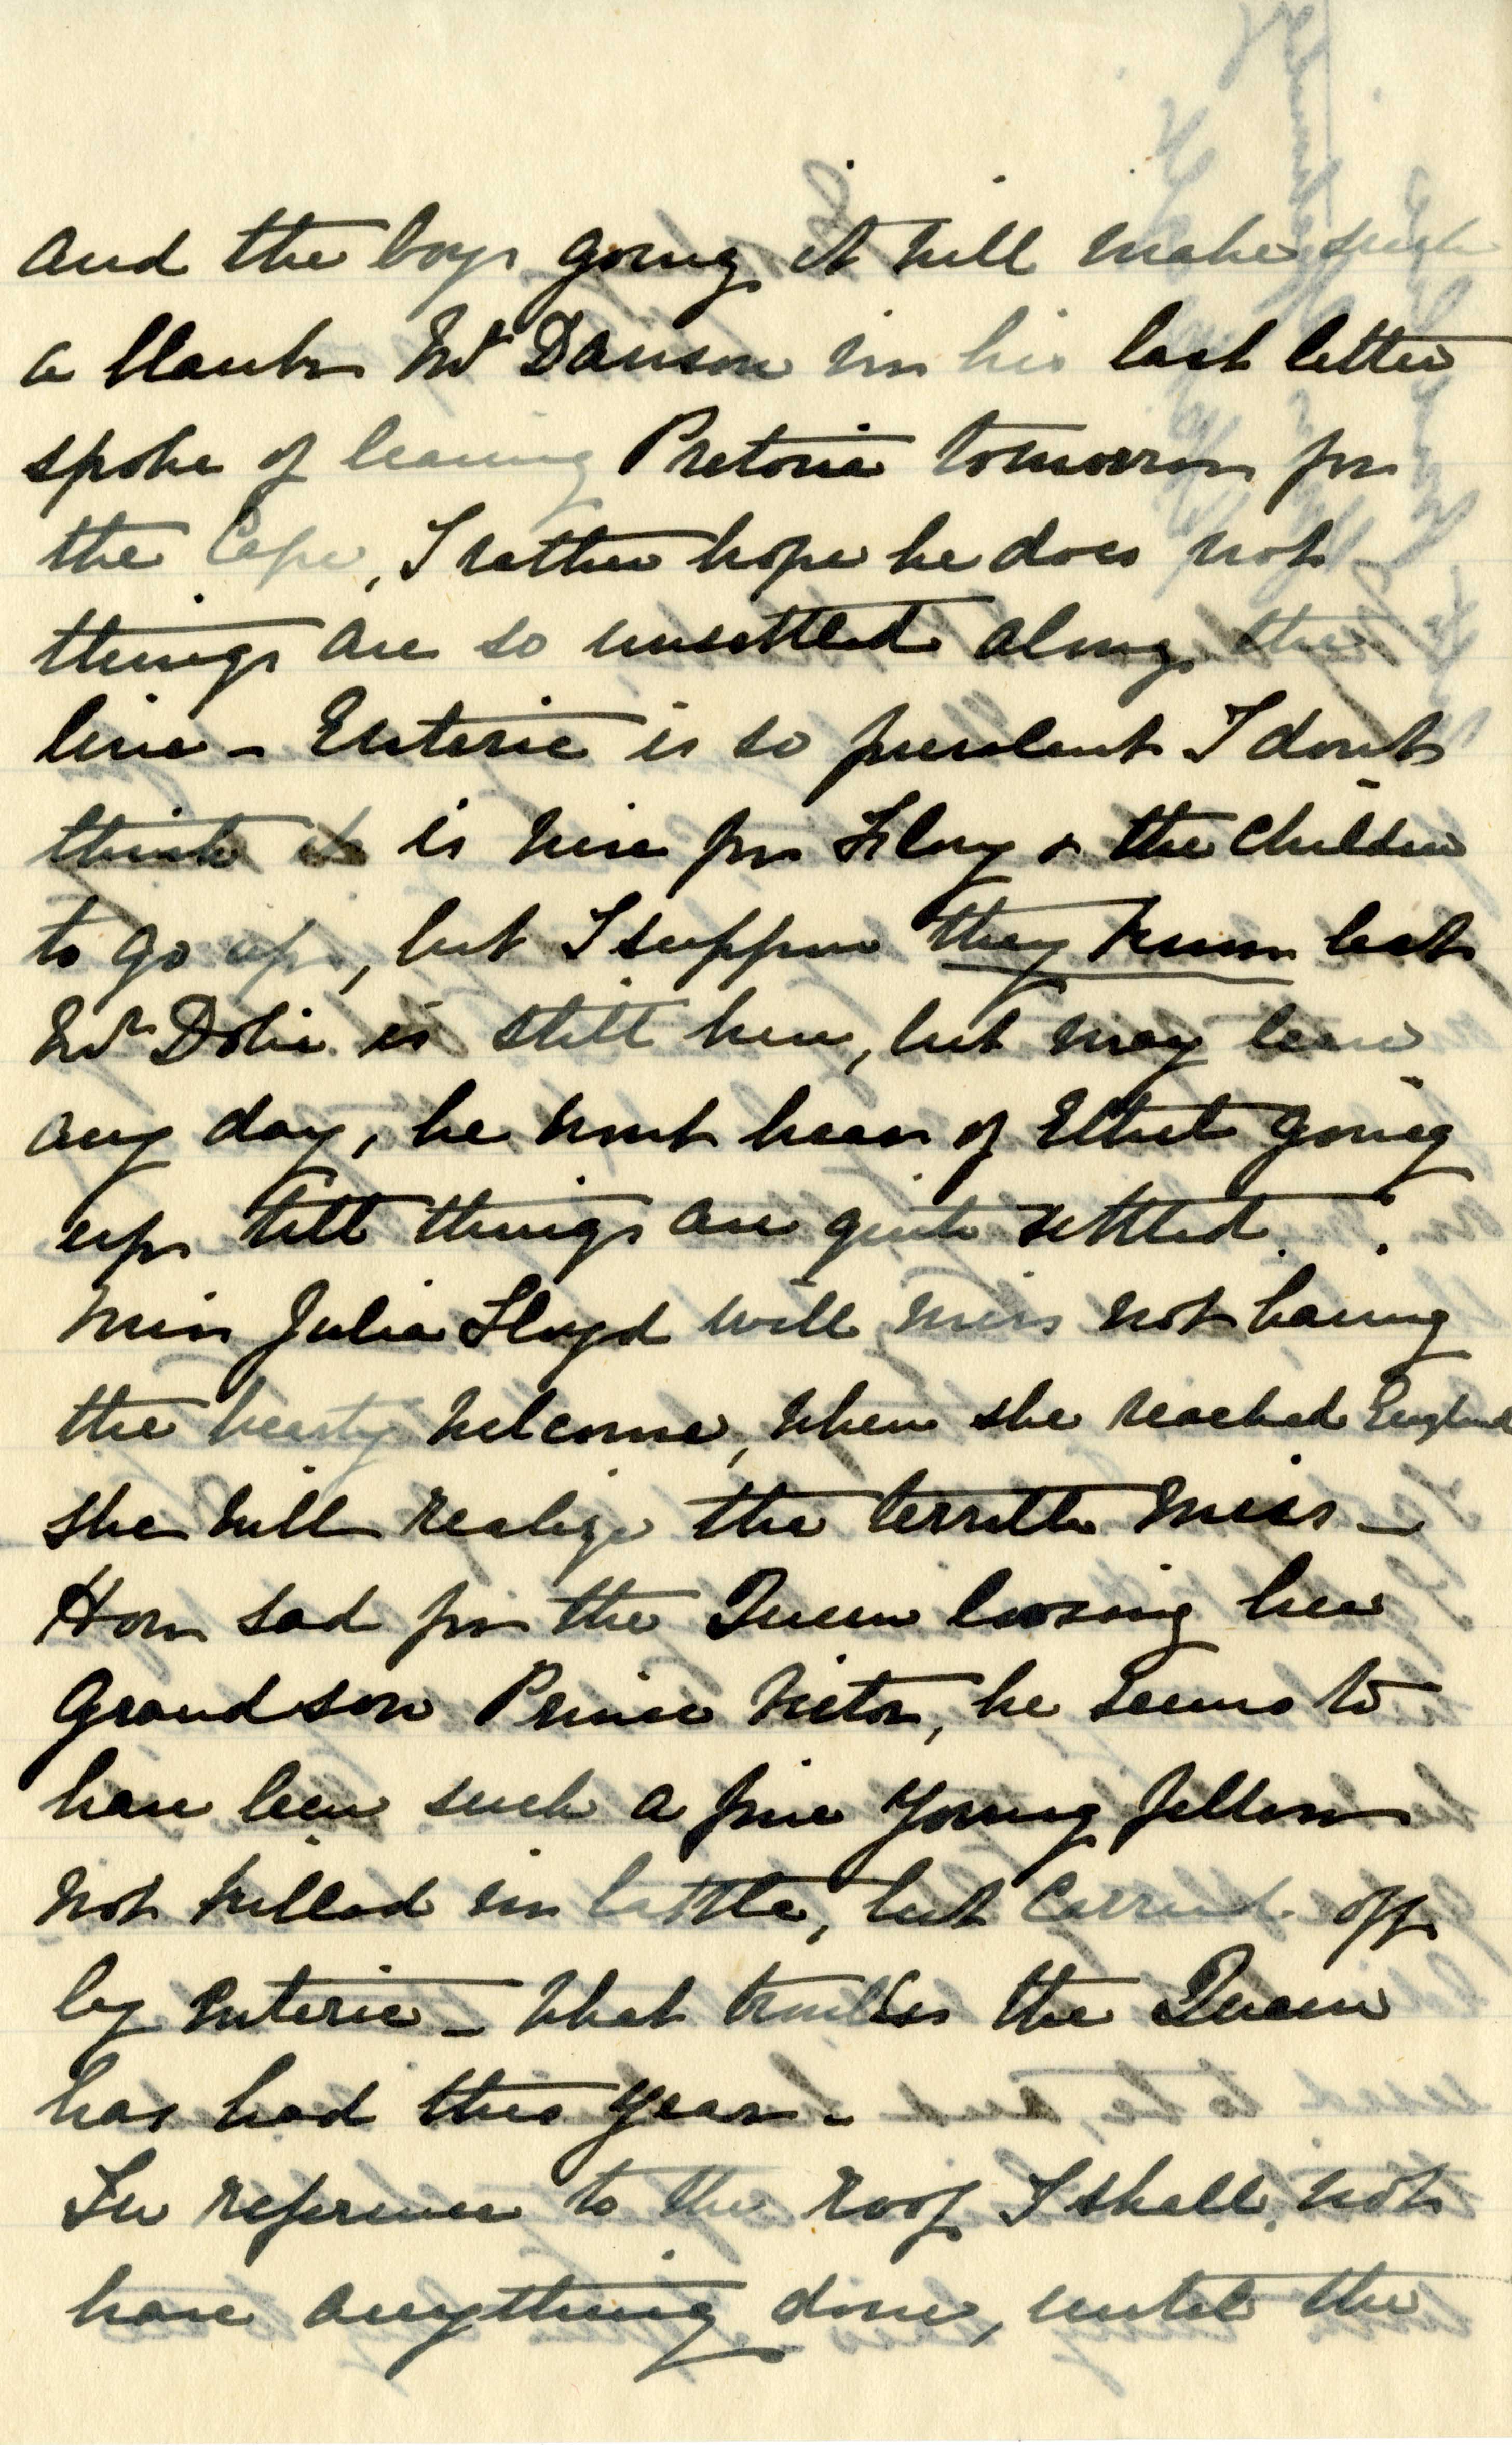 and the boys going, it will make such
a blank Mr Dawson in his last letter
spoke of leaving Pretoria tomorrow for
the Cape, I rather hope he does not
things are so unsettled along the
line - Enteric is so prevalent I dont
think it is wise for Flory & the children
to go up, but I suppose they know best
Mr Dobie is still here, but may leave
any day, he wont hear of Ethel going
up till things are quite settled.
Miss Julia Lloyd will miss not having
the hearty welcome, when she reached England
she will realize the terrible miss -
How sad for the Queen loosing her
Grandson Prince Victor, he seems to
have been such a fine young fellow
not killed in battle, but carried off
by enteric - What troubles the Queen
has had this year -
In reference to the roof I shall not
have anything done, until the